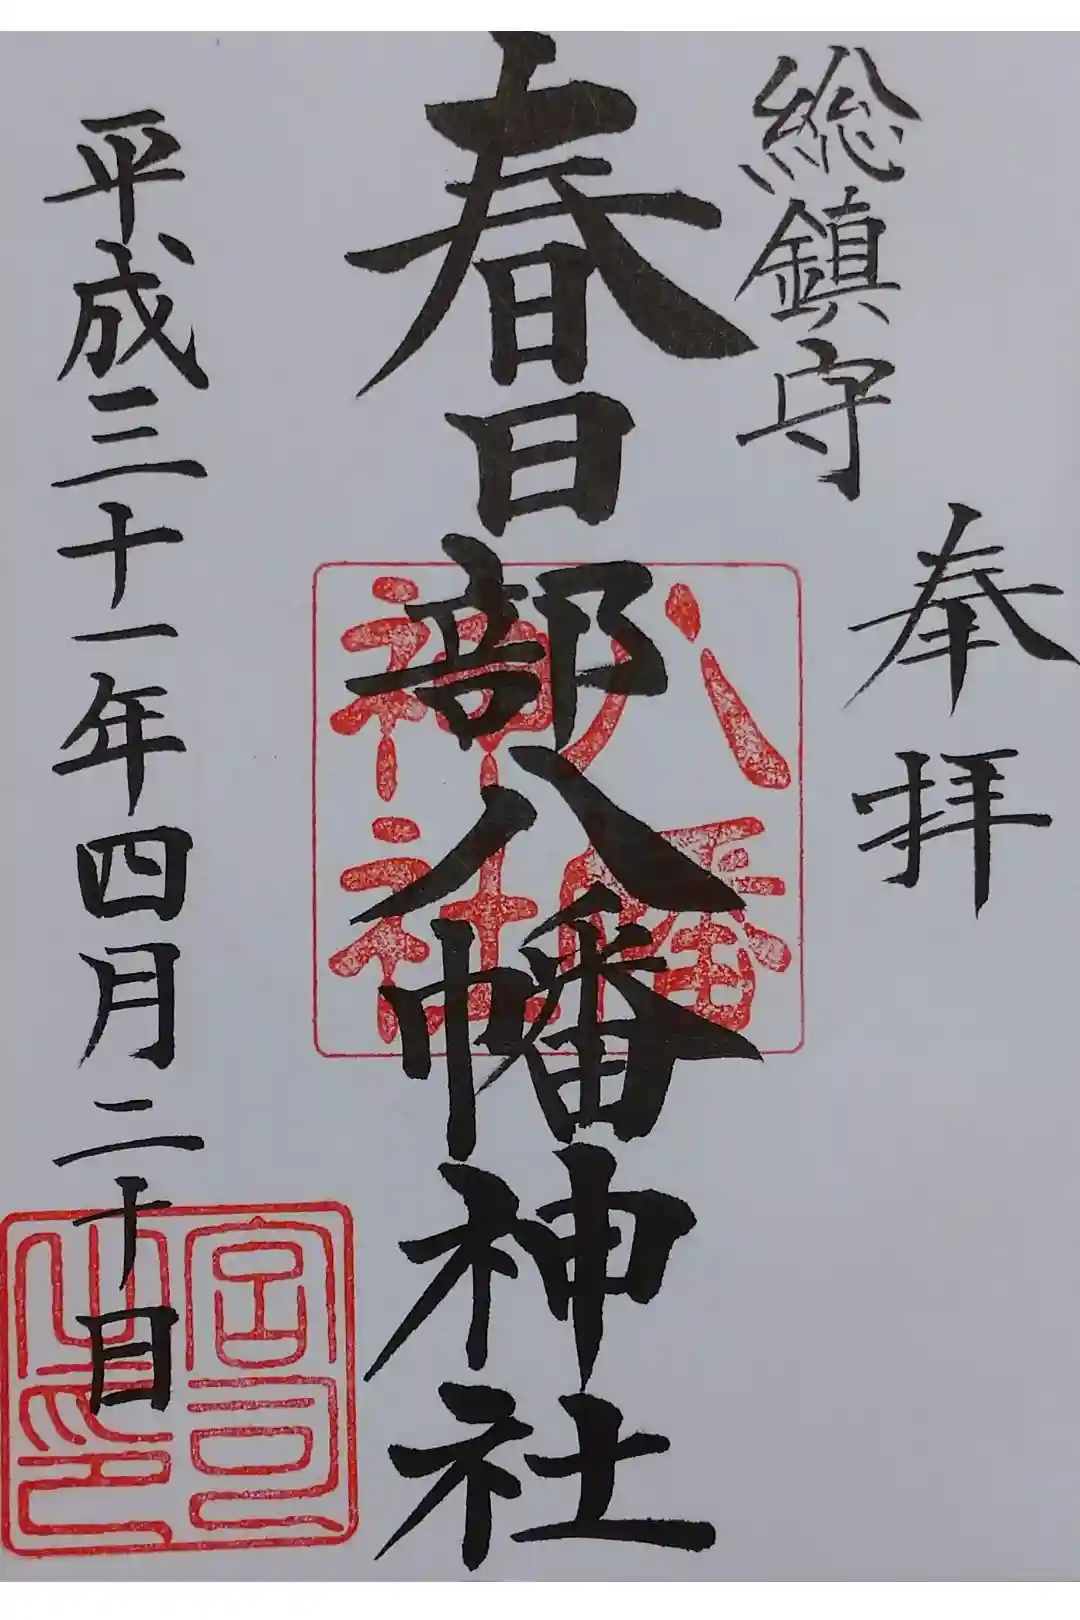 奉拝
総鎮守
春日部八幡神社
平成三十一年四月二十日
八幡
神社
宮司
之印